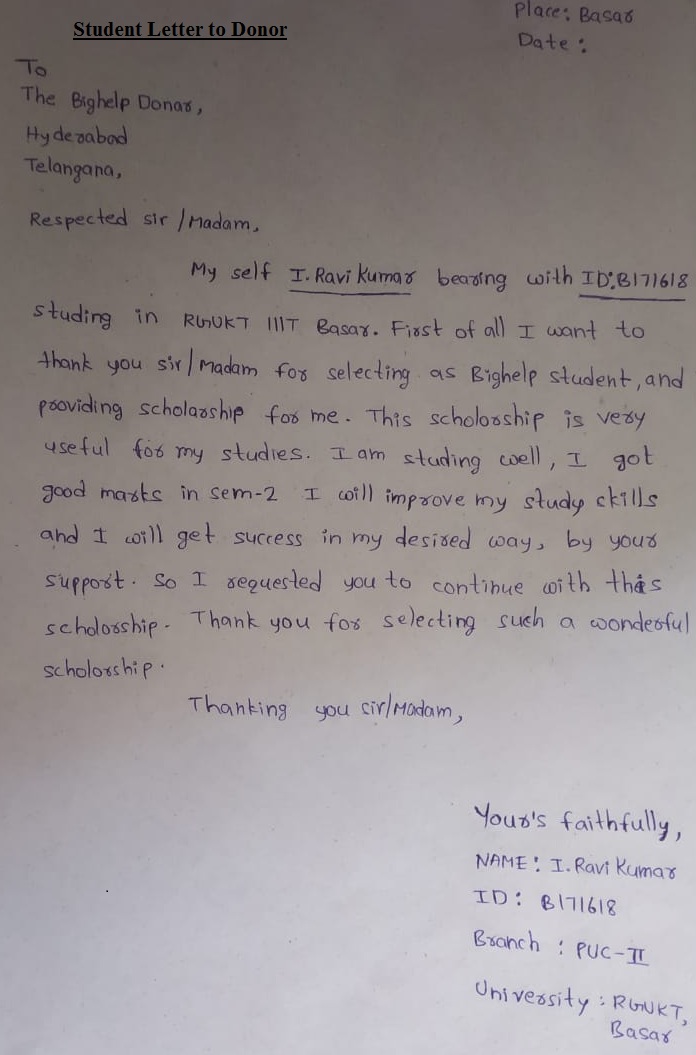 Student Letter to Donor
Place: Basar
Date:
To
The Bighelp Donar,
Hyderabad
Telangana,
Respected sir/Madam,
My self I. Ravi kumar bearing with ID:B171618
studing in RGUKT IIIT Basar. First of all I want to
thank you sir/Madam for selecting as Bighelp student, and
providing scholarship for me. This scholorship is very
useful for my studies. I am studing well, I got
good marks in sem-2 I will improve my study ckills
and I will get success in my desired way, by your
support. So I requested you to continue with this
scholorship. Thank you for selecting such a wonderful
scholorship.
Thanking you sir/Madam,
Your's faithfully,
NAME: I. Ravi Kumar
ID: B171618
Branch : PUC-II
University : RGUKT,
Basar